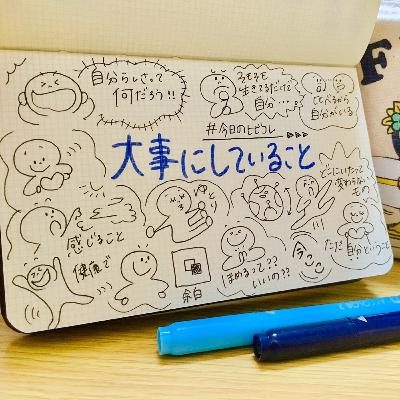 自分らしさって
何だろう!!
そもそも
生きてるだけで
自分....
くらべるから
自分がいる
#今日のヒビフレ
大事にしていること
どこにいたって
変わらない
もの
感じること
健康で
余白
ほめるって??
いいの??
ただ自分ということ
F